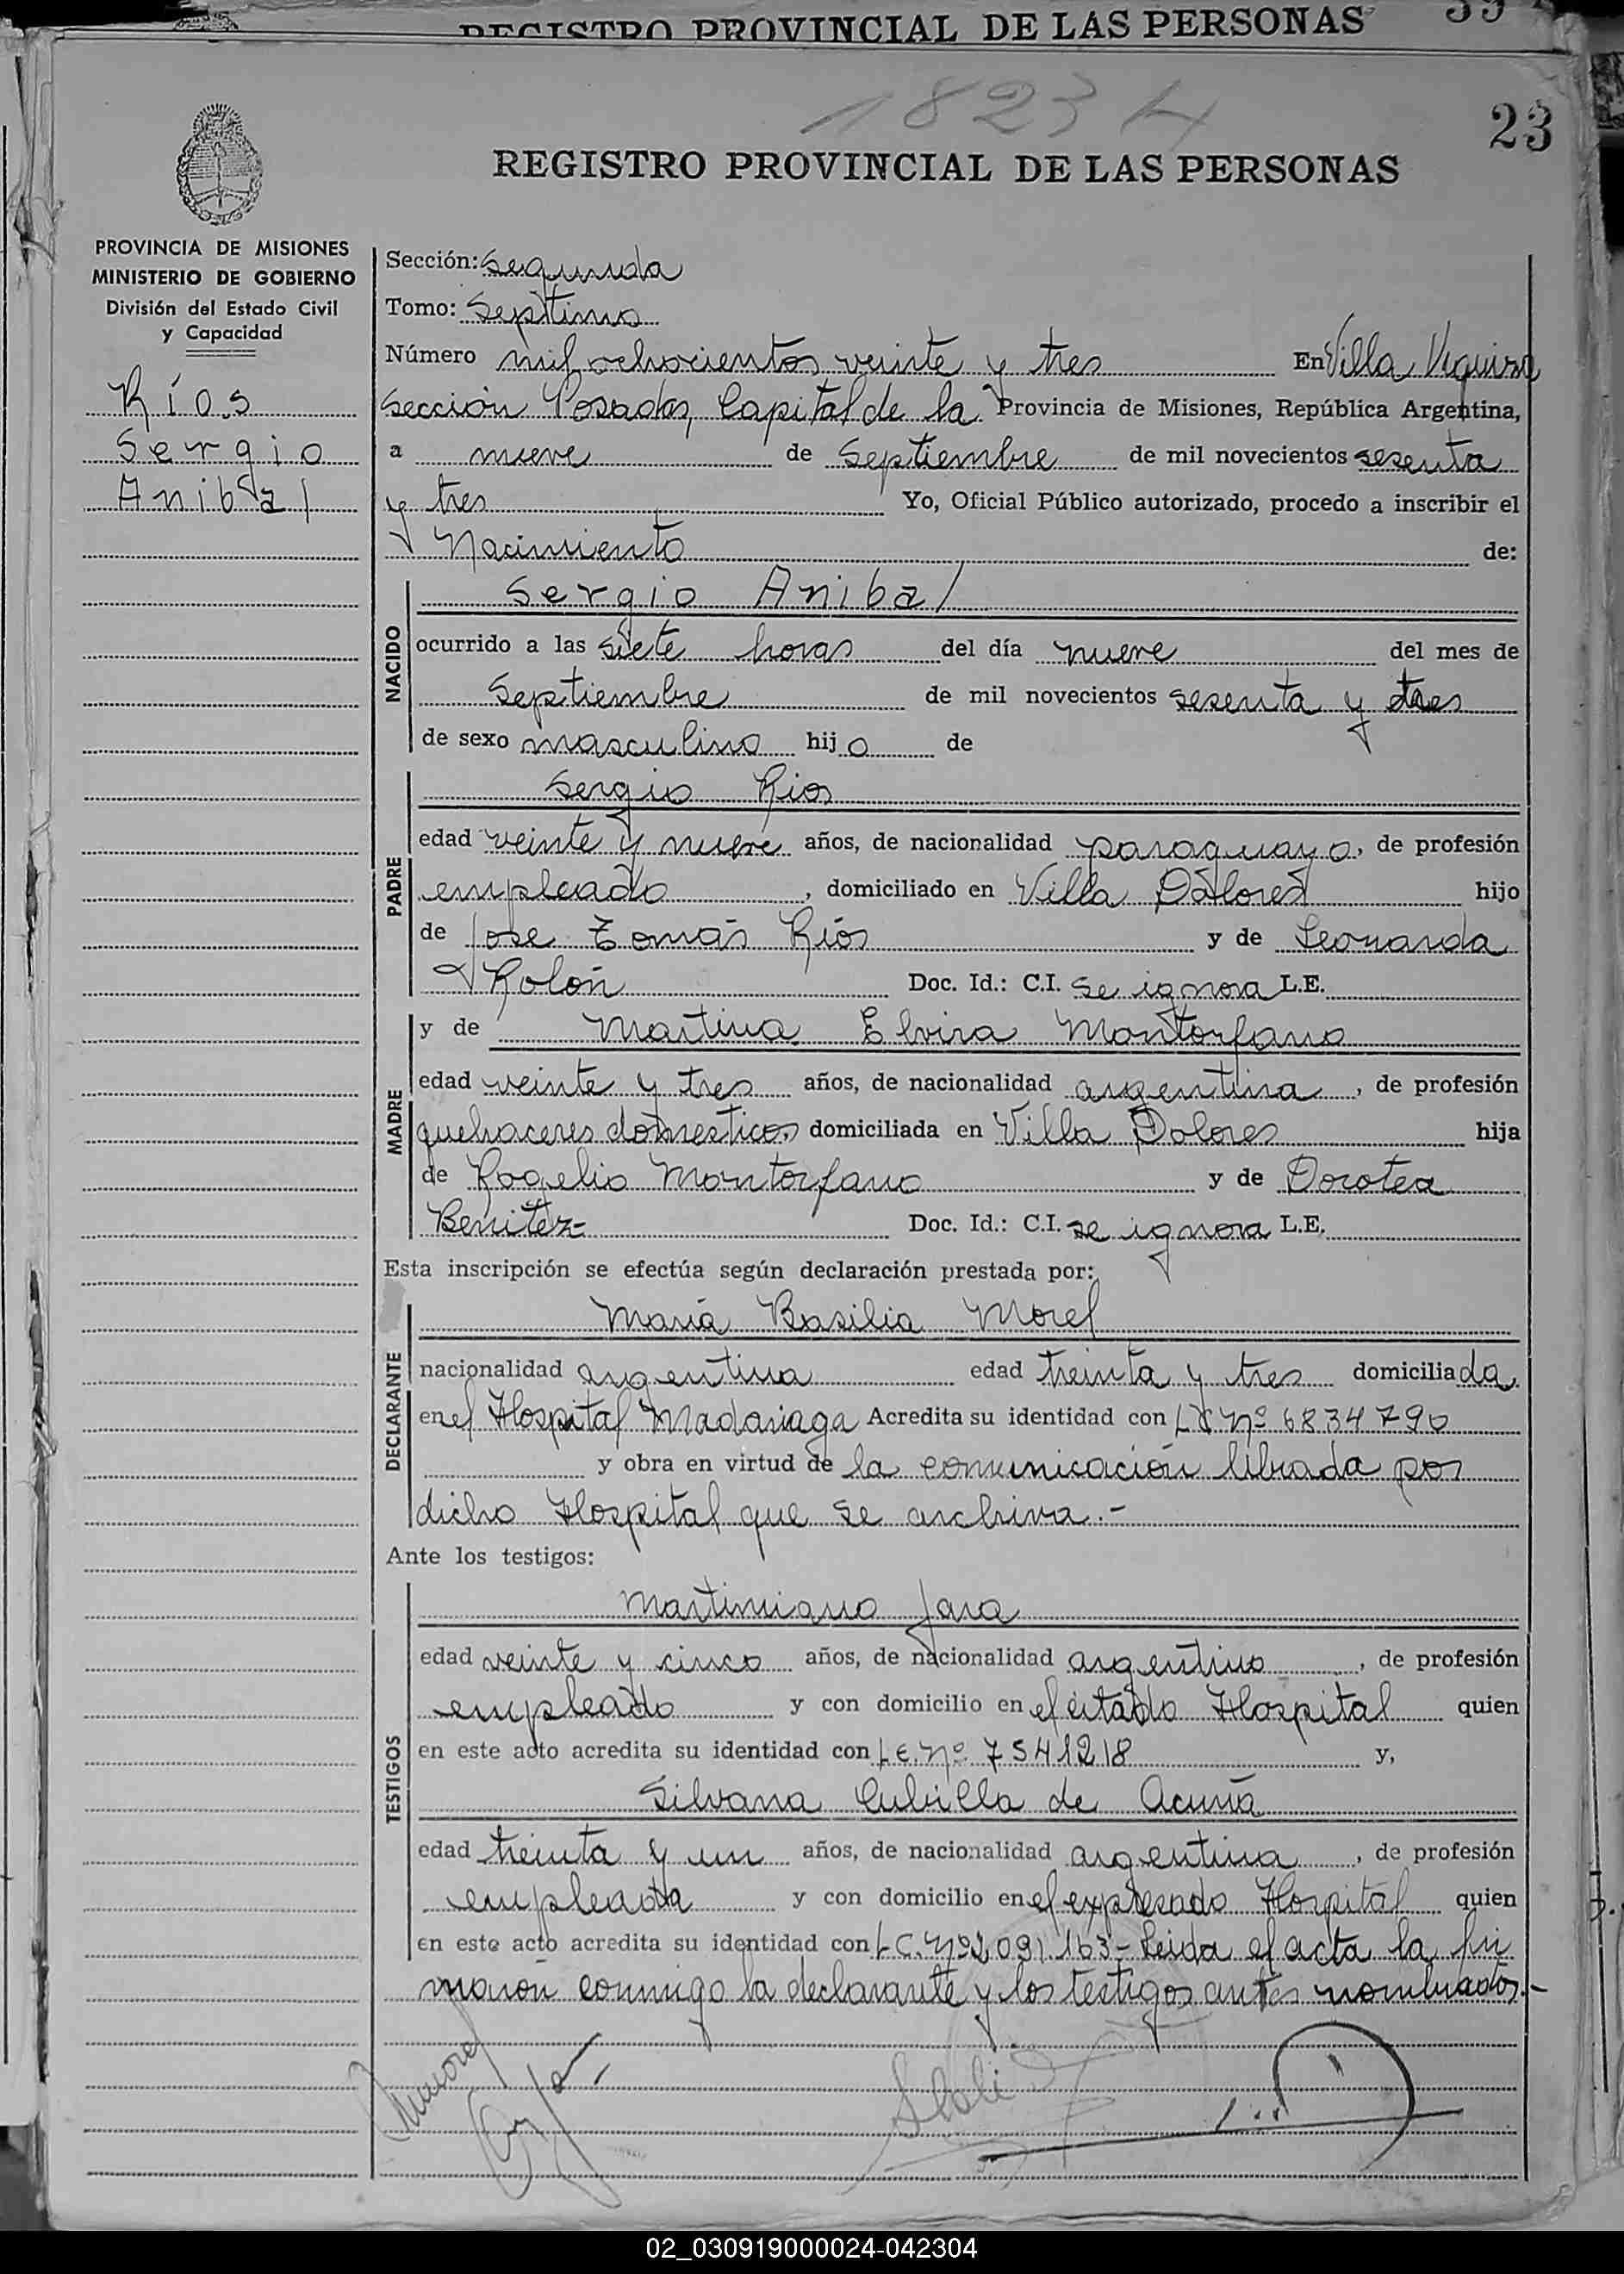 REGISTRO PROVINCIAL DE LAS PERSONAS
18234
23
REGISTRO PROVINCIAL DE LAS PERSONAS
PROVINCIA DE MISIONES
MINISTERIO DE GOBIERNO
División del Estado Civil
y Capacidad
Ríos
Sergio
Anibal
Sección: Segunda
Tomo: Septimo
Número mil ochocientos veinte y tres En Villa Urquiza
Sección Posadas, Capital de la Provincia de Misiones, República Argentina,
a nueve de Septiembre de mil novecientos sesenta
y tres Yo, Oficial Público autorizado, procedo a inscribir el
Nacimiento de:
NACIDO
Sergio Anibal
ocurrido a las siete horas del día nueve del mes de
Septiembre de mil novecientos sesenta y tres
de sexo masculino hijo de
PADRE
Sergio Rios
edad veinte y nueve años, de nacionalidad paraguayo, de profesión
empleado, domiciliado en Villa Dolores hijo
de Jose Tomás Ríos y de Leonarda
Rolón Doc. Id.: C.I. se ignora L.E.
MADRE
y de Martina Elvira Montorfano
edad veinte y tres años, de nacionalidad argentina, de profesión
quehaceres domesticos, domiciliada en Villa Dolores hija
de Rogelio Montorfano y de Dorotea
Benitez- Doc. Id.: C.I. se ignora L.E.
Esta inscripción se efectúa según declaración prestada por:
DECLARANTE
María Basilia Morel
nacionalidad argentina edad treinta y tres domiciliada
en el Hospital Madariaga Acredita su identidad con LC Nº 6834790
y obra en virtud de la comunicación librada por
dicho Hospital que se archiva.-
Ante los testigos:
TESTIGOS
Martimiano Jara
edad veinte y cinco años, de nacionalidad argentino, de profesión
empleado y con domicilio en el citado Hospital quien
en este acto acredita su identidad con L.E. Nº 7541218 y,
Silvana Cubilla de Acuña
edad treinta y un años, de nacionalidad argentina, de profesión
empleada y con domicilio en el expresado Hospital quien
en este acto acredita su identidad con L.C. Nº 2.091.163- Leida el acta la fir
maron conmigo la declarante y los testigos antes nombrados.-
02_030919000024-042304